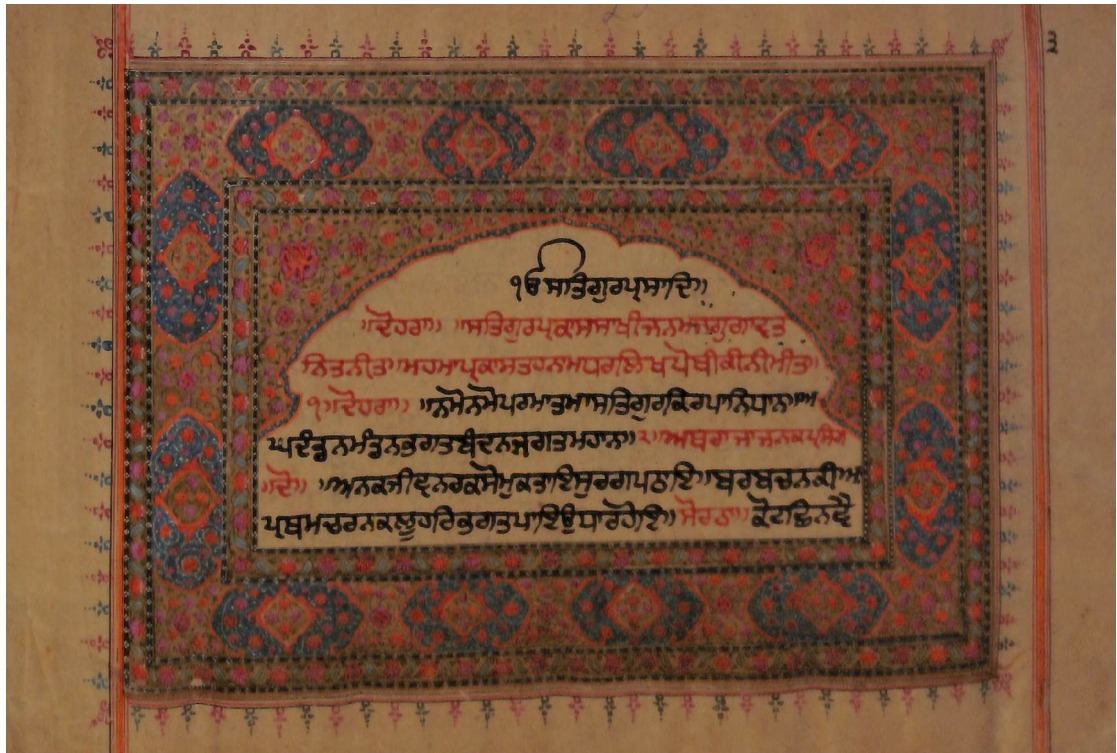 ੩
ੴ ਸਤਿਗੁਰਪ੍ਰਸਾਦਿ॥
॥ਦੋਹਰਾ॥ ॥ਸਤਿਗੁਰਪ੍ਰਕਾਸਸਾਖੀਜਨਮ
ਨਿਤਨੀਤ॥ਮਹਮਾਪ੍ਰਕਾਸਤਹਨਾਮਧਰਲਿਖਪੋਥੀਕੀਨੀਮੀਤ॥
੧॥ਦੋਹਰਾ॥ ॥ਨਮੋਨਮੋਪਰਮਾਤਮਾਸਤਿਗੁਰਕਿਰਪਾਨਿਧਾਨ॥ਅ
ਘਦੰਡਨਮੰਡਨਭਗਤਬੰਦਨਜਗਤਮਹਾਨ॥੨॥ਅਥਰਾਜਾਜਨਕਪ੍ਰਸੰਗ
॥ਦੋ॥ ॥ਅਨਕਜੀਵਨਰਕਸੋਮੁਕਤਾਇਸੁਰਗਪਠਾਇ॥ਬਰਬਚਨਕੀਅ
ਪ੍ਰਥਮਚਰਨਕਲੂਹਰਿਭਗਤਪਾਇਉਧਾਰੋਹੋਇ॥ਸੋਰਠਾ॥ ਕੋਟਾਛਿਨਵੈ